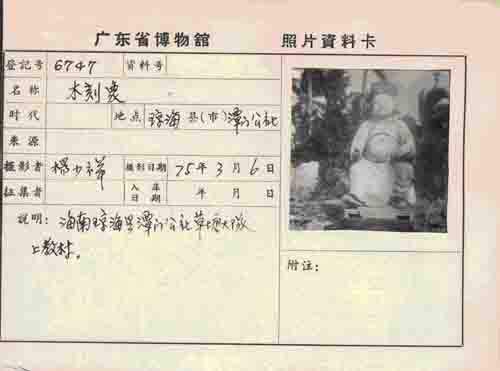 广东省博物館 照片資料卡
登記号 6747 資料号
名称 木刻象
时代 地点 琼海县(市)潭门公社
来源
摄影者 杨少祥 摄影日期 75年3月6日
征集者 入库日期 年 月 日
説明: 海南琼海县潭门公社草塘大队
上教村.
附注: